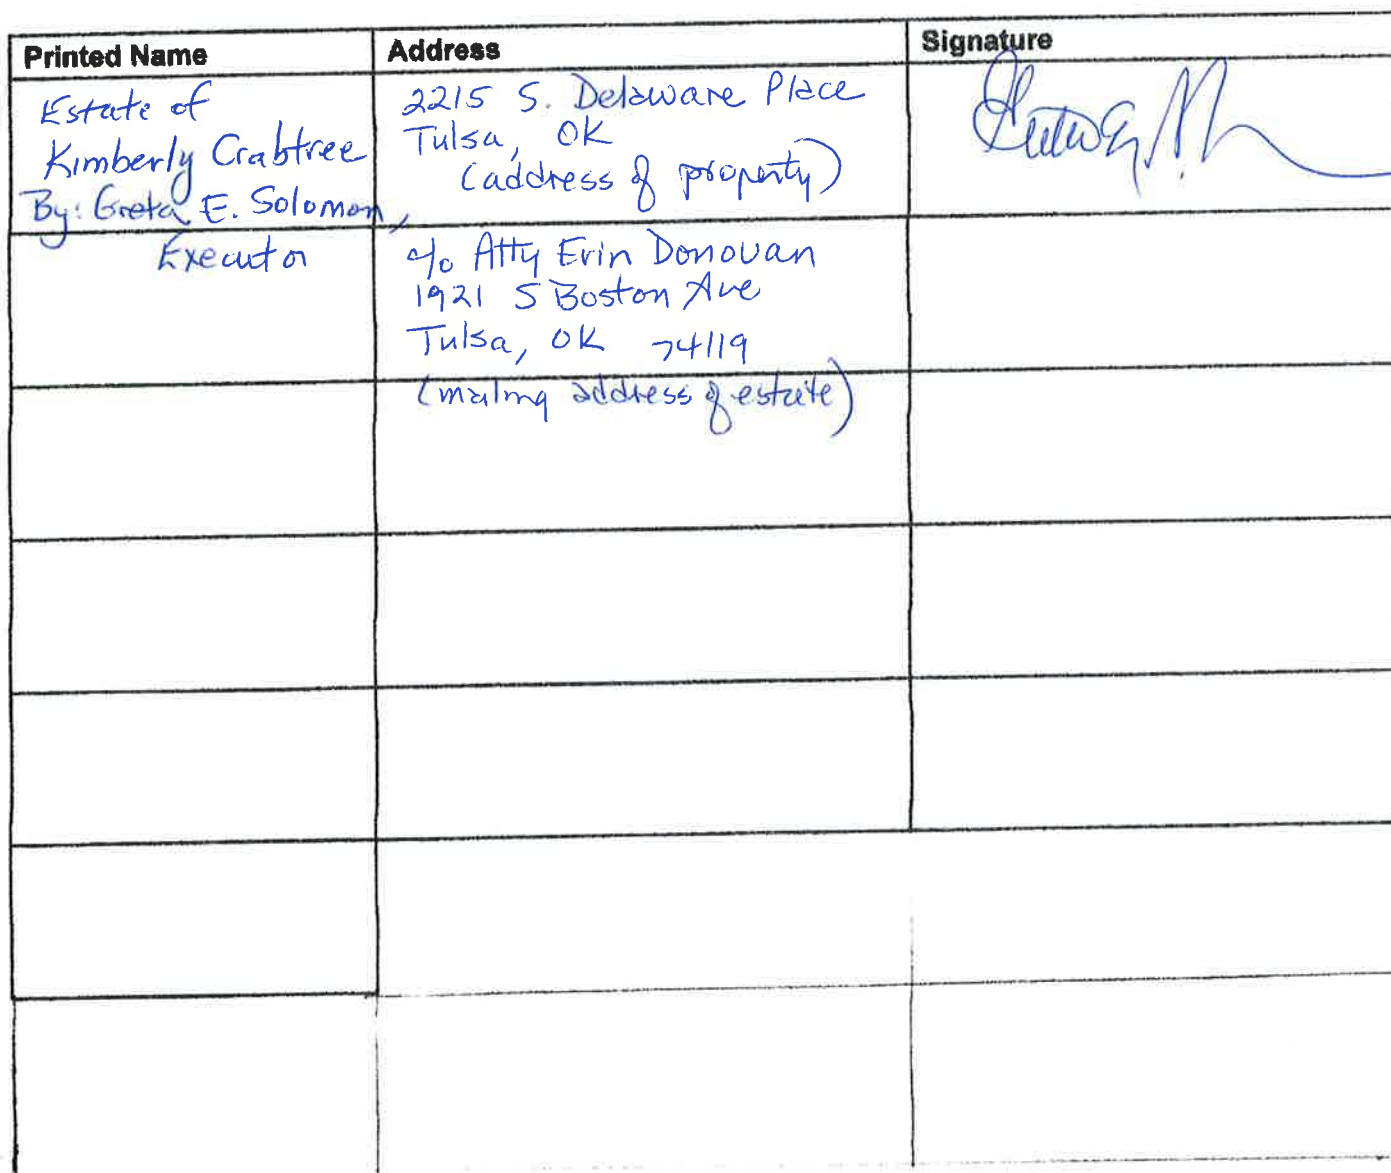 Printed Name
Address
Signature
Estate of
Kimberly Crabtree
By: Greta E. Solomon,
Executor
2215 S. Delaware Place
Tulsa, OK
(address of property)
c/o Atty Erin Donovan
1921 S Boston Ave
Tulsa, OK 74119
(mailing address of estate)